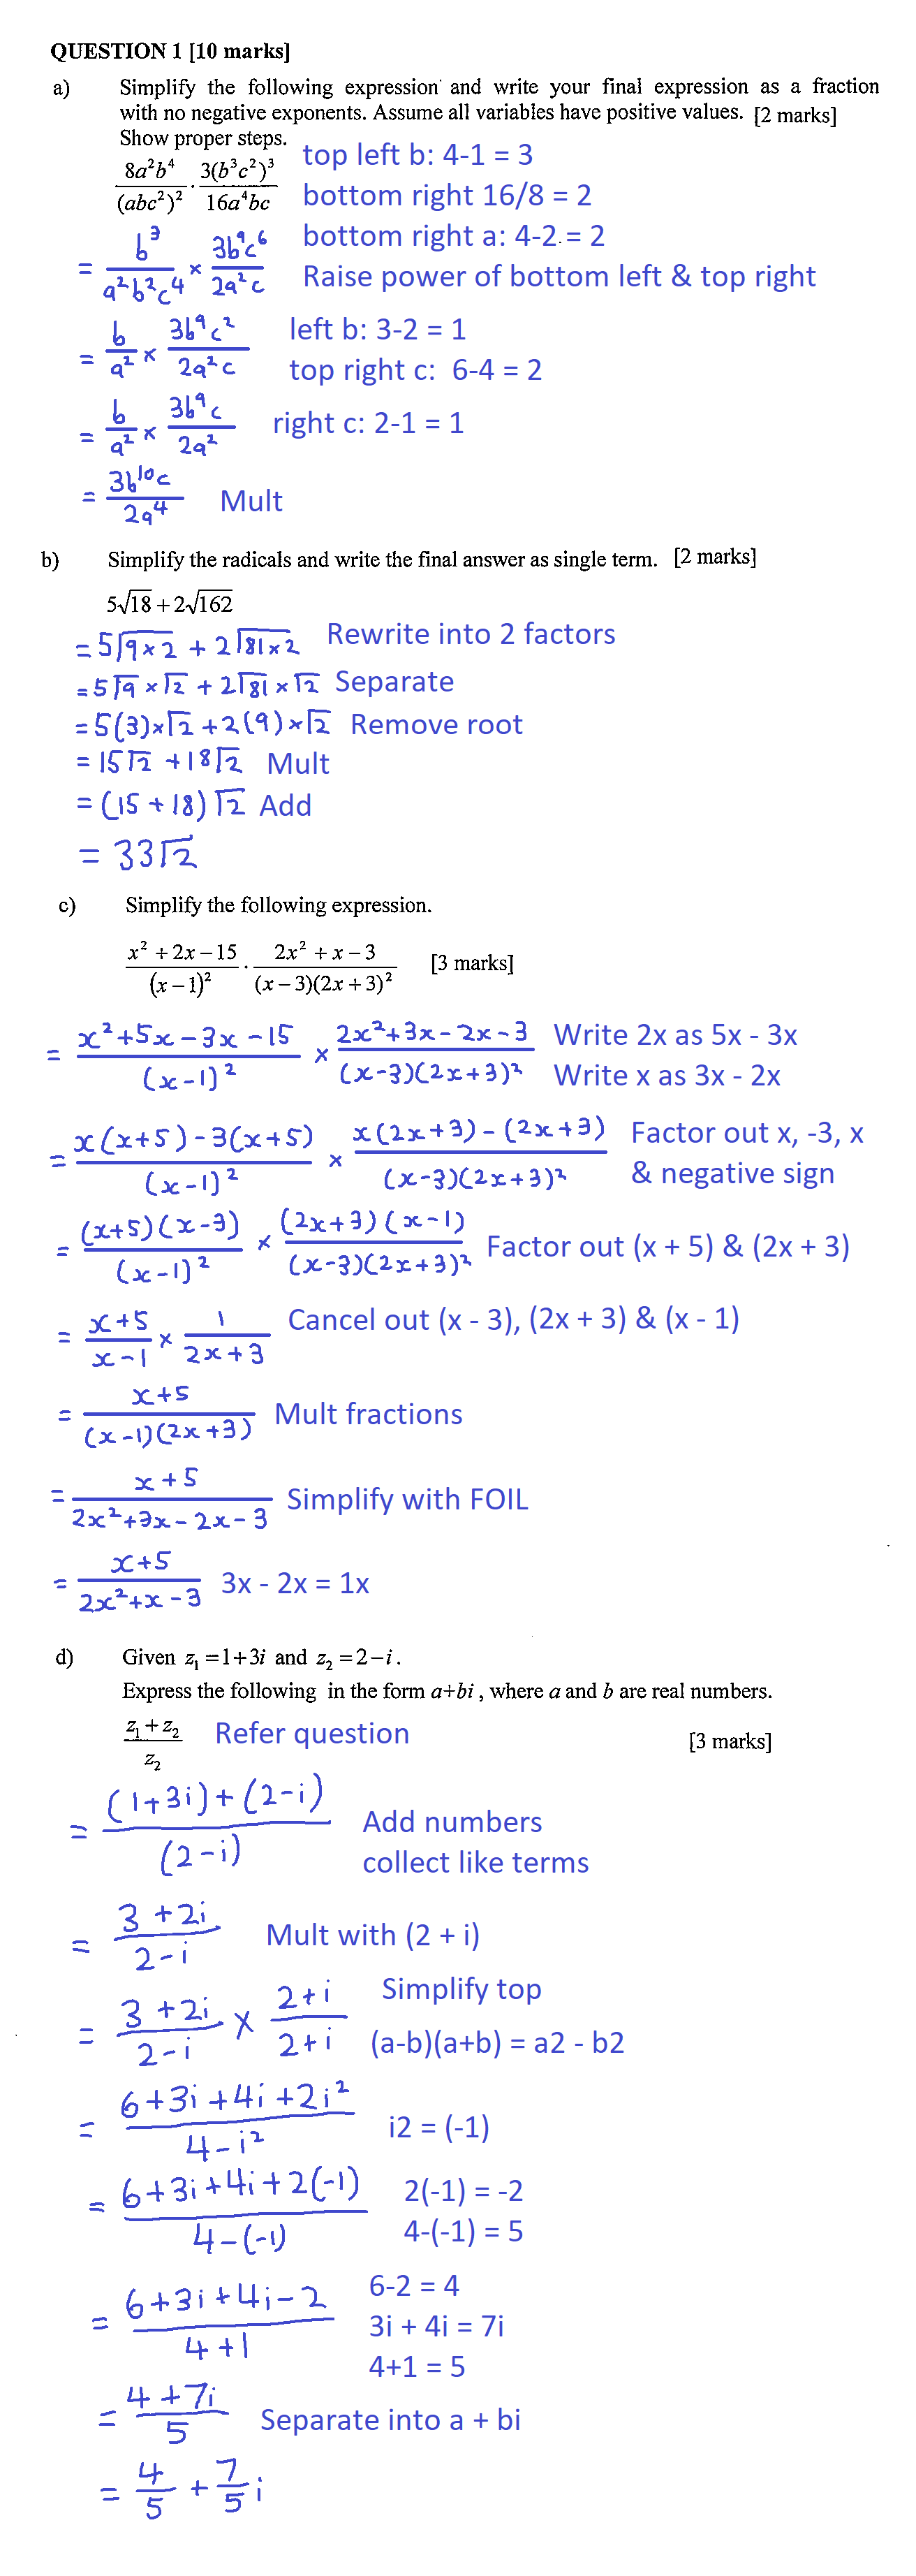 QUESTION 1 [10 marks]
a) Simplify the following expression and write your final expression as a fraction
with no negative exponents. Assume all variables have positive values. [2 marks]
Show proper steps.
8a²b⁴/(abc²)² · 3(b³c²)³/16a⁴bc
top left b: 4-1 = 3
bottom right 16/8 = 2
bottom right a: 4-2 = 2
Raise power of bottom left & top right
= b³/a²b²c⁴ × 3b⁹c⁶/2a²c
= b/a² × 3b⁹c²/2a²c
left b: 3-2 = 1
top right c: 6-4 = 2
= b/a² × 3b⁹c/2a² right c: 2-1 = 1
= 3b¹⁰c/2a⁴ Mult
b) Simplify the radicals and write the final answer as single term. [2 marks]
5√18 + 2√162
= 5√9×2 + 2√81×2 Rewrite into 2 factors
= 5√9 × √2 + 2√81 × √2 Separate
= 5(3)×√2 + 2(9)×√2 Remove root
= 15√2 + 18√2 Mult
= (15 + 18)√2 Add
= 33√2
c) Simplify the following expression.
x² + 2x − 15/(x − 1)² · 2x² + x − 3/(x − 3)(2x + 3)² [3 marks]
= x²+5x−3x−15/(x−1)² × 2x²+3x−2x−3/(x−3)(2x+3)²
Write 2x as 5x - 3x
Write x as 3x - 2x
= x(x+5)−3(x+5)/(x−1)² × x(2x+3)−(2x+3)/(x−3)(2x+3)²
Factor out x, -3, x
& negative sign
= (x+5)(x−3)/(x−1)² × (2x+3)(x−1)/(x−3)(2x+3)² Factor out (x + 5) & (2x + 3)
= x+5/x−1 × 1/2x+3 Cancel out (x - 3), (2x + 3) & (x - 1)
= x+5/(x−1)(2x+3) Mult fractions
= x+5/2x²+3x−2x−3 Simplify with FOIL
= x+5/2x²+x−3 3x - 2x = 1x
d) Given z₁ = 1+3i and z₂ = 2−i.
Express the following in the form a+bi, where a and b are real numbers.
z₁ + z₂/z₂ Refer question [3 marks]
= (1+3i)+(2−i)/(2−i)
Add numbers
collect like terms
= 3+2i/2−i Mult with (2 + i)
= 3+2i/2−i × 2+i/2+i
Simplify top
(a-b)(a+b) = a2 - b2
= 6+3i+4i+2i²/4−i² i2 = (-1)
= 6+3i+4i+2(−1)/4−(−1)
2(-1) = -2
4-(-1) = 5
= 6+3i+4i−2/4+1
6-2 = 4
3i + 4i = 7i
4+1 = 5
= 4+7i/5 Separate into a + bi
= 4/5 + 7/5 i